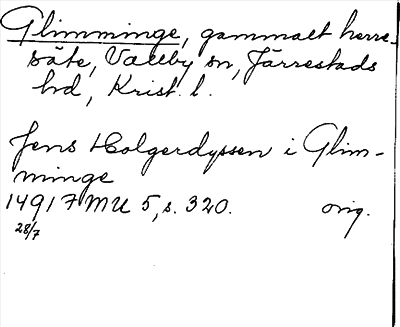 Glimminge, gammalt herre-
säte, Vallby sn, Järrestads
hd, Krist. l.
Jens Holgerdyssen i Glim-
minge
1491 7 MU 5, s. 320. orig.
28/7